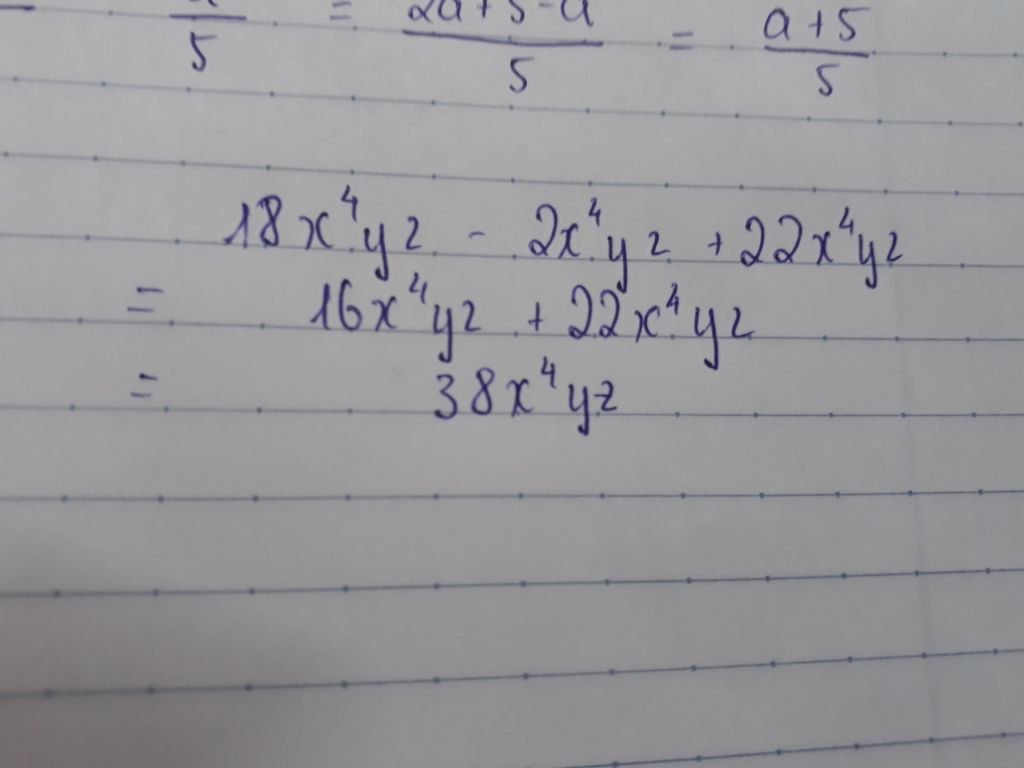 /5 = 2a+5-a/5 = a+5/5
18x⁴yz - 2x⁴yz + 22x⁴yz
= 16x⁴yz + 22x⁴yz
= 38x⁴yz